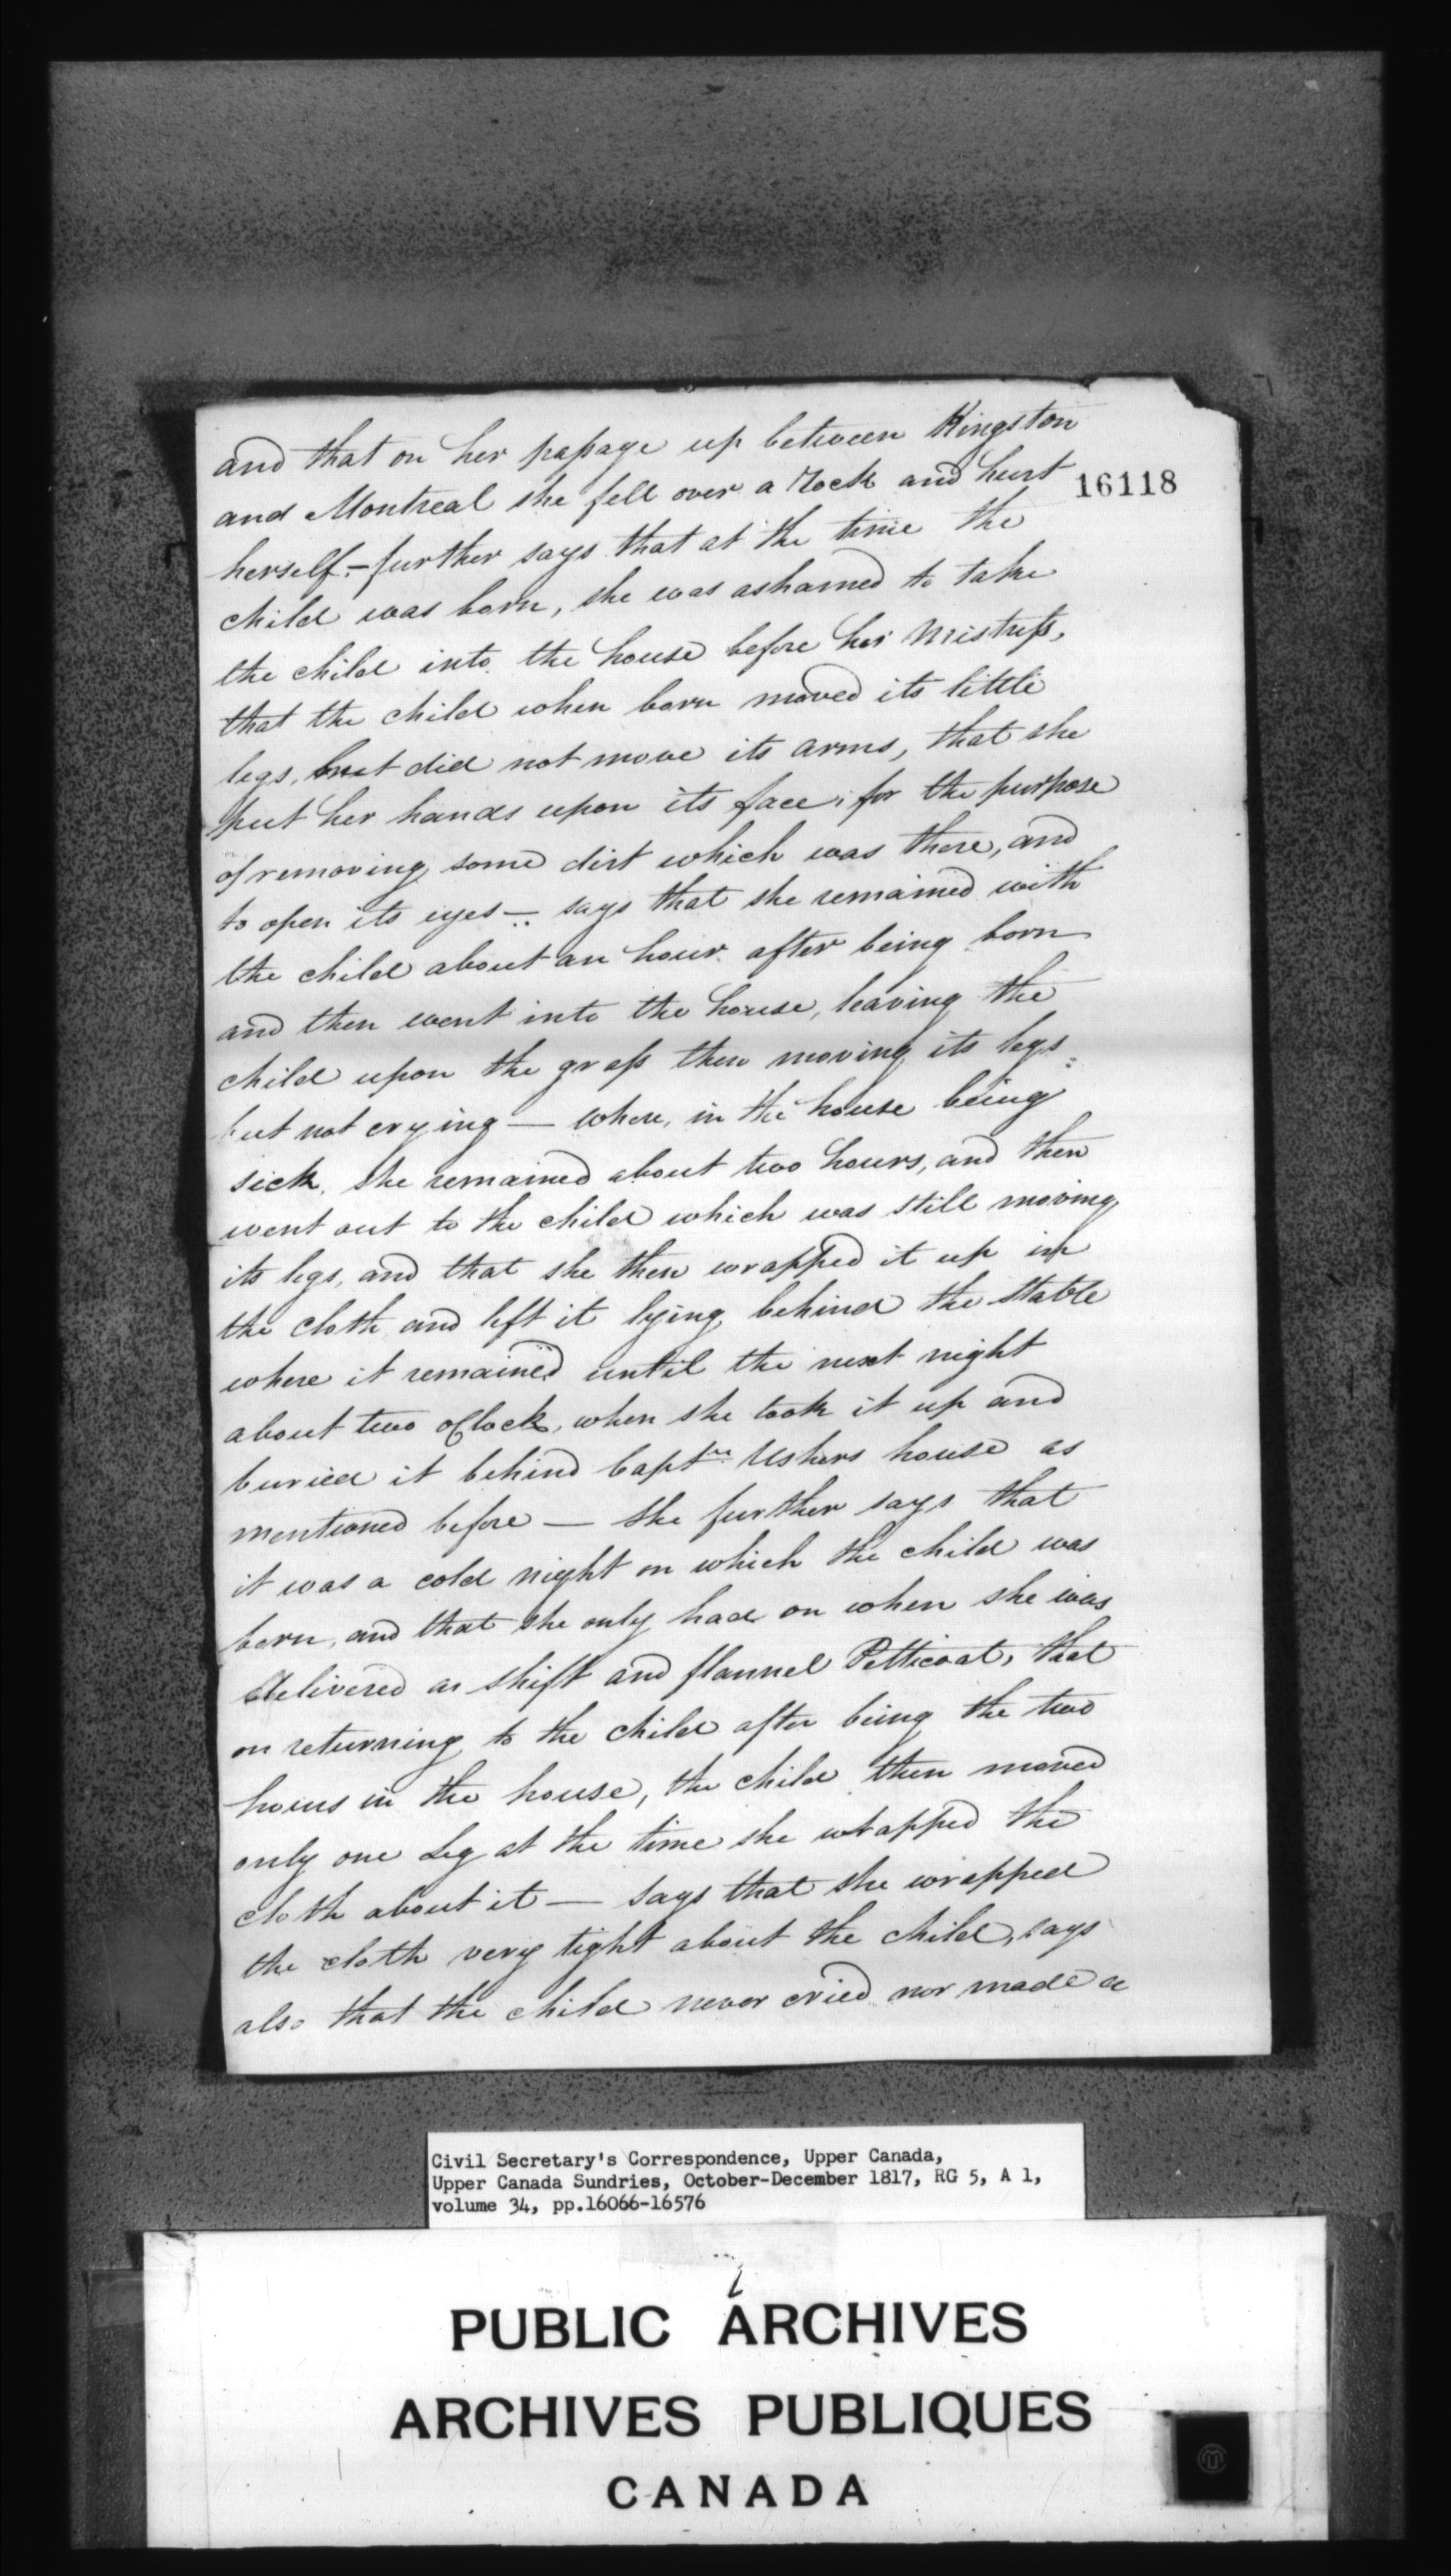 and that on her paſsage up between Kingston
and Montreal she fell over a Rock and hurt
16118
herself.- further says that at the time the
child was born, she was ashamed to take
the child into the house before her Mistreſs,
that the child when born moved its little
legs, but did not move its arms, that she
put her hands upon its face, for the purpose
of removing some dirt which was there, and
to open its eyes — says that she remained with
the child about an hour after being born
and then went into the house, leaving the
child upon the graſs then moving its legs
but not crying — where, in the house being
sick, she remained about two hours, and then
went out to the child which was still moving
its legs, and that she then wrapped it up in
the cloth and left it lying behind the stable
where it remained until the next night
about two oClock, when she took it up and
buried it behind Captn Ushers house as
mentioned before — she further says that
it was a cold night on which the child was
born, and that she only had on when she was
delivered a shift and flannel Petticoat, that
on returning to the child after being the two
hours in the house, the child then moved
only one Leg at the time she wrapped the
cloth about it — says that she wrapped
the cloth very tight about the child, says
also that the child never cried nor made a
Civil Secretary's Correspondence, Upper Canada,
Upper Canada Sundries, October-December 1817, RG 5, A 1,
volume 34, pp.16066-16576
PUBLIC ARCHIVES
ARCHIVES PUBLIQUES
CANADA